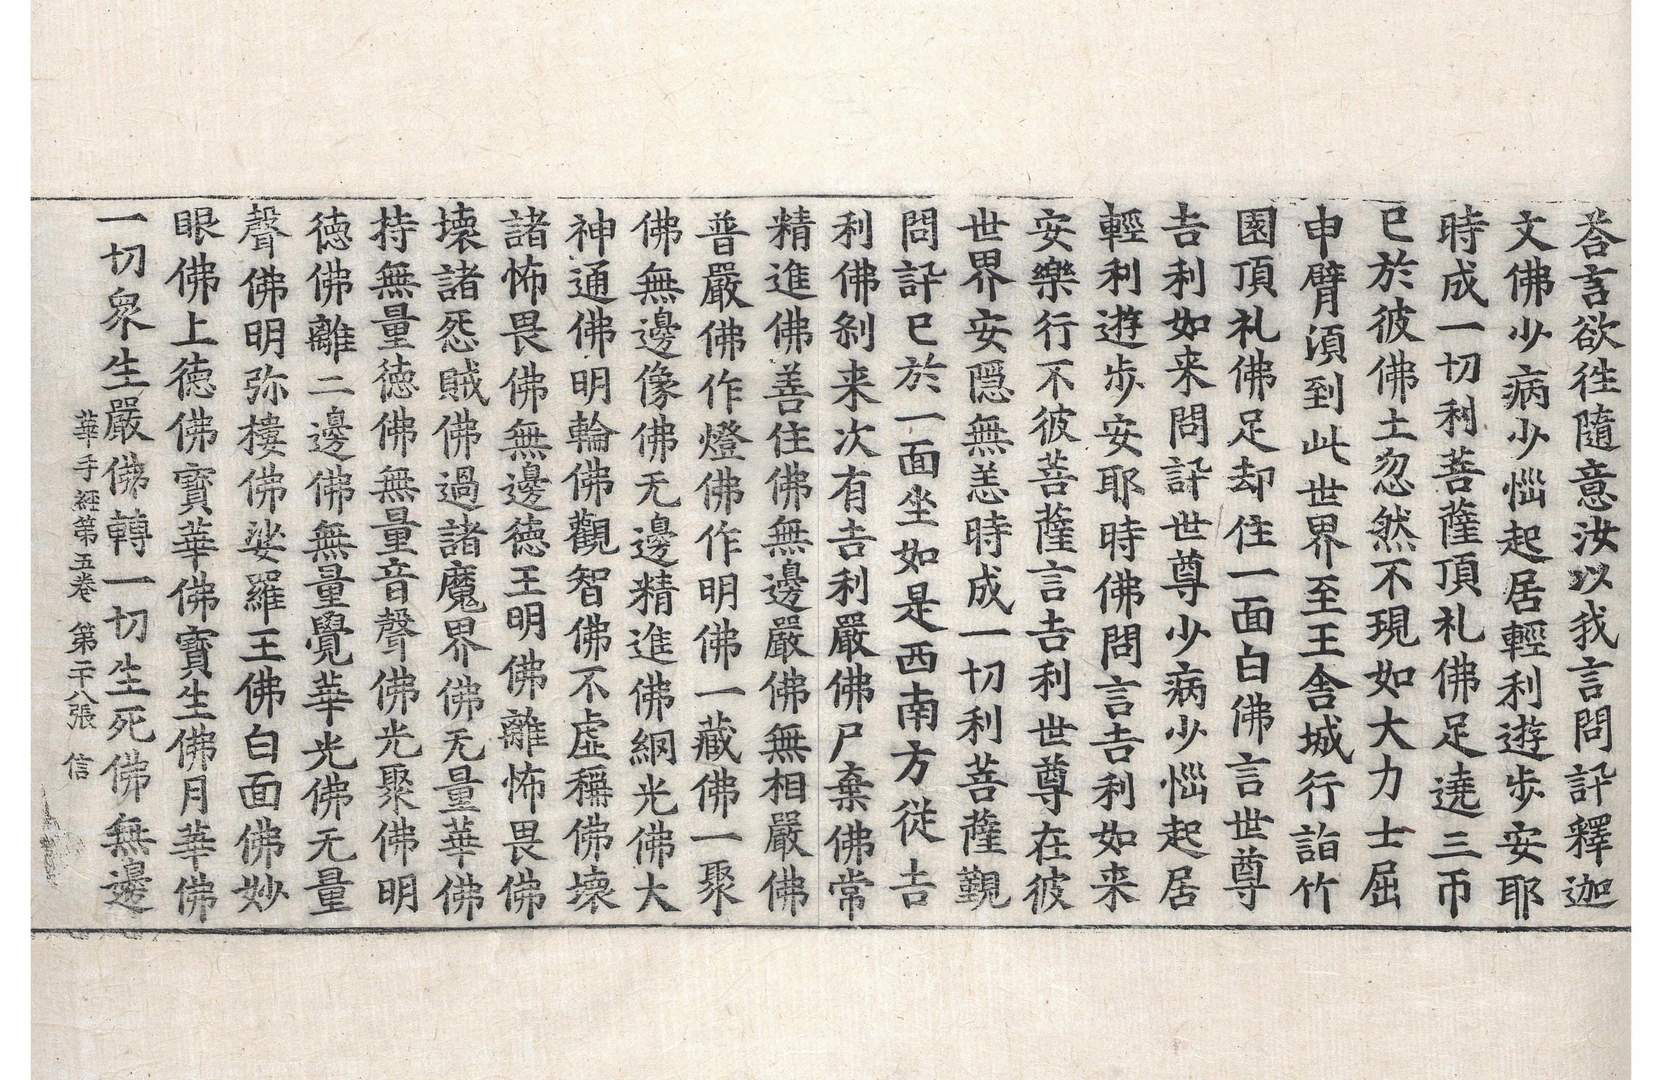 荅言欲徃隨意汝以我言問訊釋迦
文佛少病少惱起居輕利遊步安耶
時成一切利菩薩頂礼佛足遶三帀
已於彼佛土忽然不現如大力士屈
申臂湏到此世界至王舍城行詣竹
園頂礼佛足却住一面白佛言世尊
吉利如来問訊世尊少病少惱起居
輕利遊步安耶時佛問言吉利如来
安樂行不彼菩薩言吉利世尊在彼
世界安隱無恙時成一切利菩薩覲
問訊已於一面坐如是西南方從吉
利佛剎来次有吉利嚴佛尸棄佛常
精進佛善住佛無邊嚴佛無相嚴佛
普嚴佛作燈佛作明佛一藏佛一聚
佛無邊像佛无邊精進佛網光佛大
神通佛明輪佛觀智佛不虛稱佛壞
諸怖畏佛無邊德王明佛離怖畏佛
壊諸怨賊佛過諸魔界佛无量華佛
持無量德佛無量音聲佛光聚佛明
德佛離二邊佛無量覺華光佛无量
聲佛明弥樓佛娑羅王佛白面佛妙
眼佛上德佛寶華佛寶生佛月華佛
一切衆生嚴佛轉一切生死佛無邊
華手經第五卷 第二十八張 信